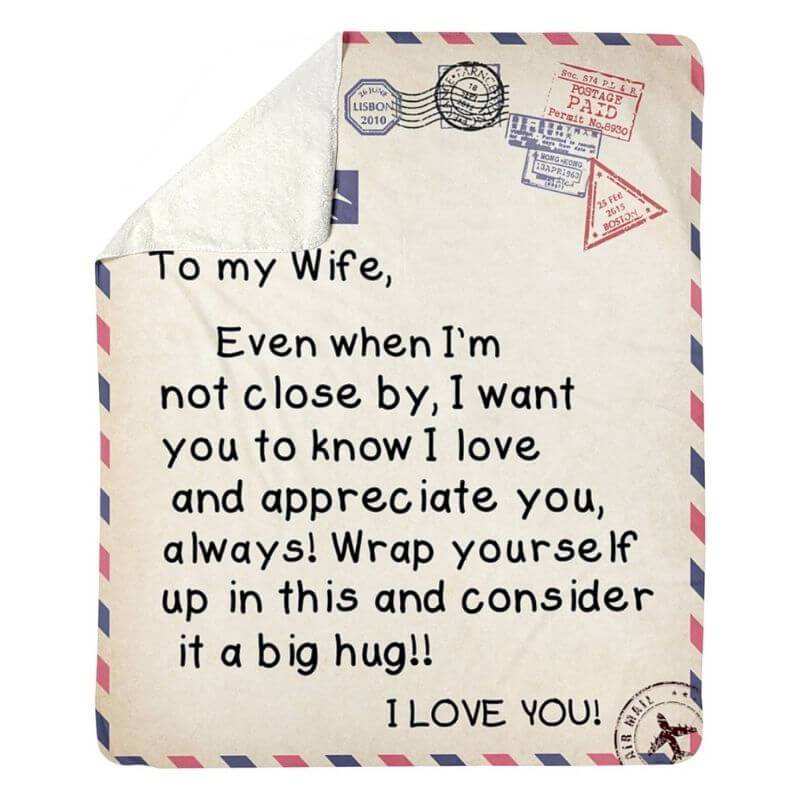 26 JUNE
LISBON
2010
18
Soc. S74 P.L & R.
POSTAGE
PAID
Permit No.8930
HONG-KONG
13APR1963
25 FEB
2015
BOSTON
To my Wife,
Even when I'm
not close by, I want
you to know I love
and appreciate you,
always! Wrap yourself
up in this and consider
it a big hug!!
I LOVE YOU!
AIR MAIL